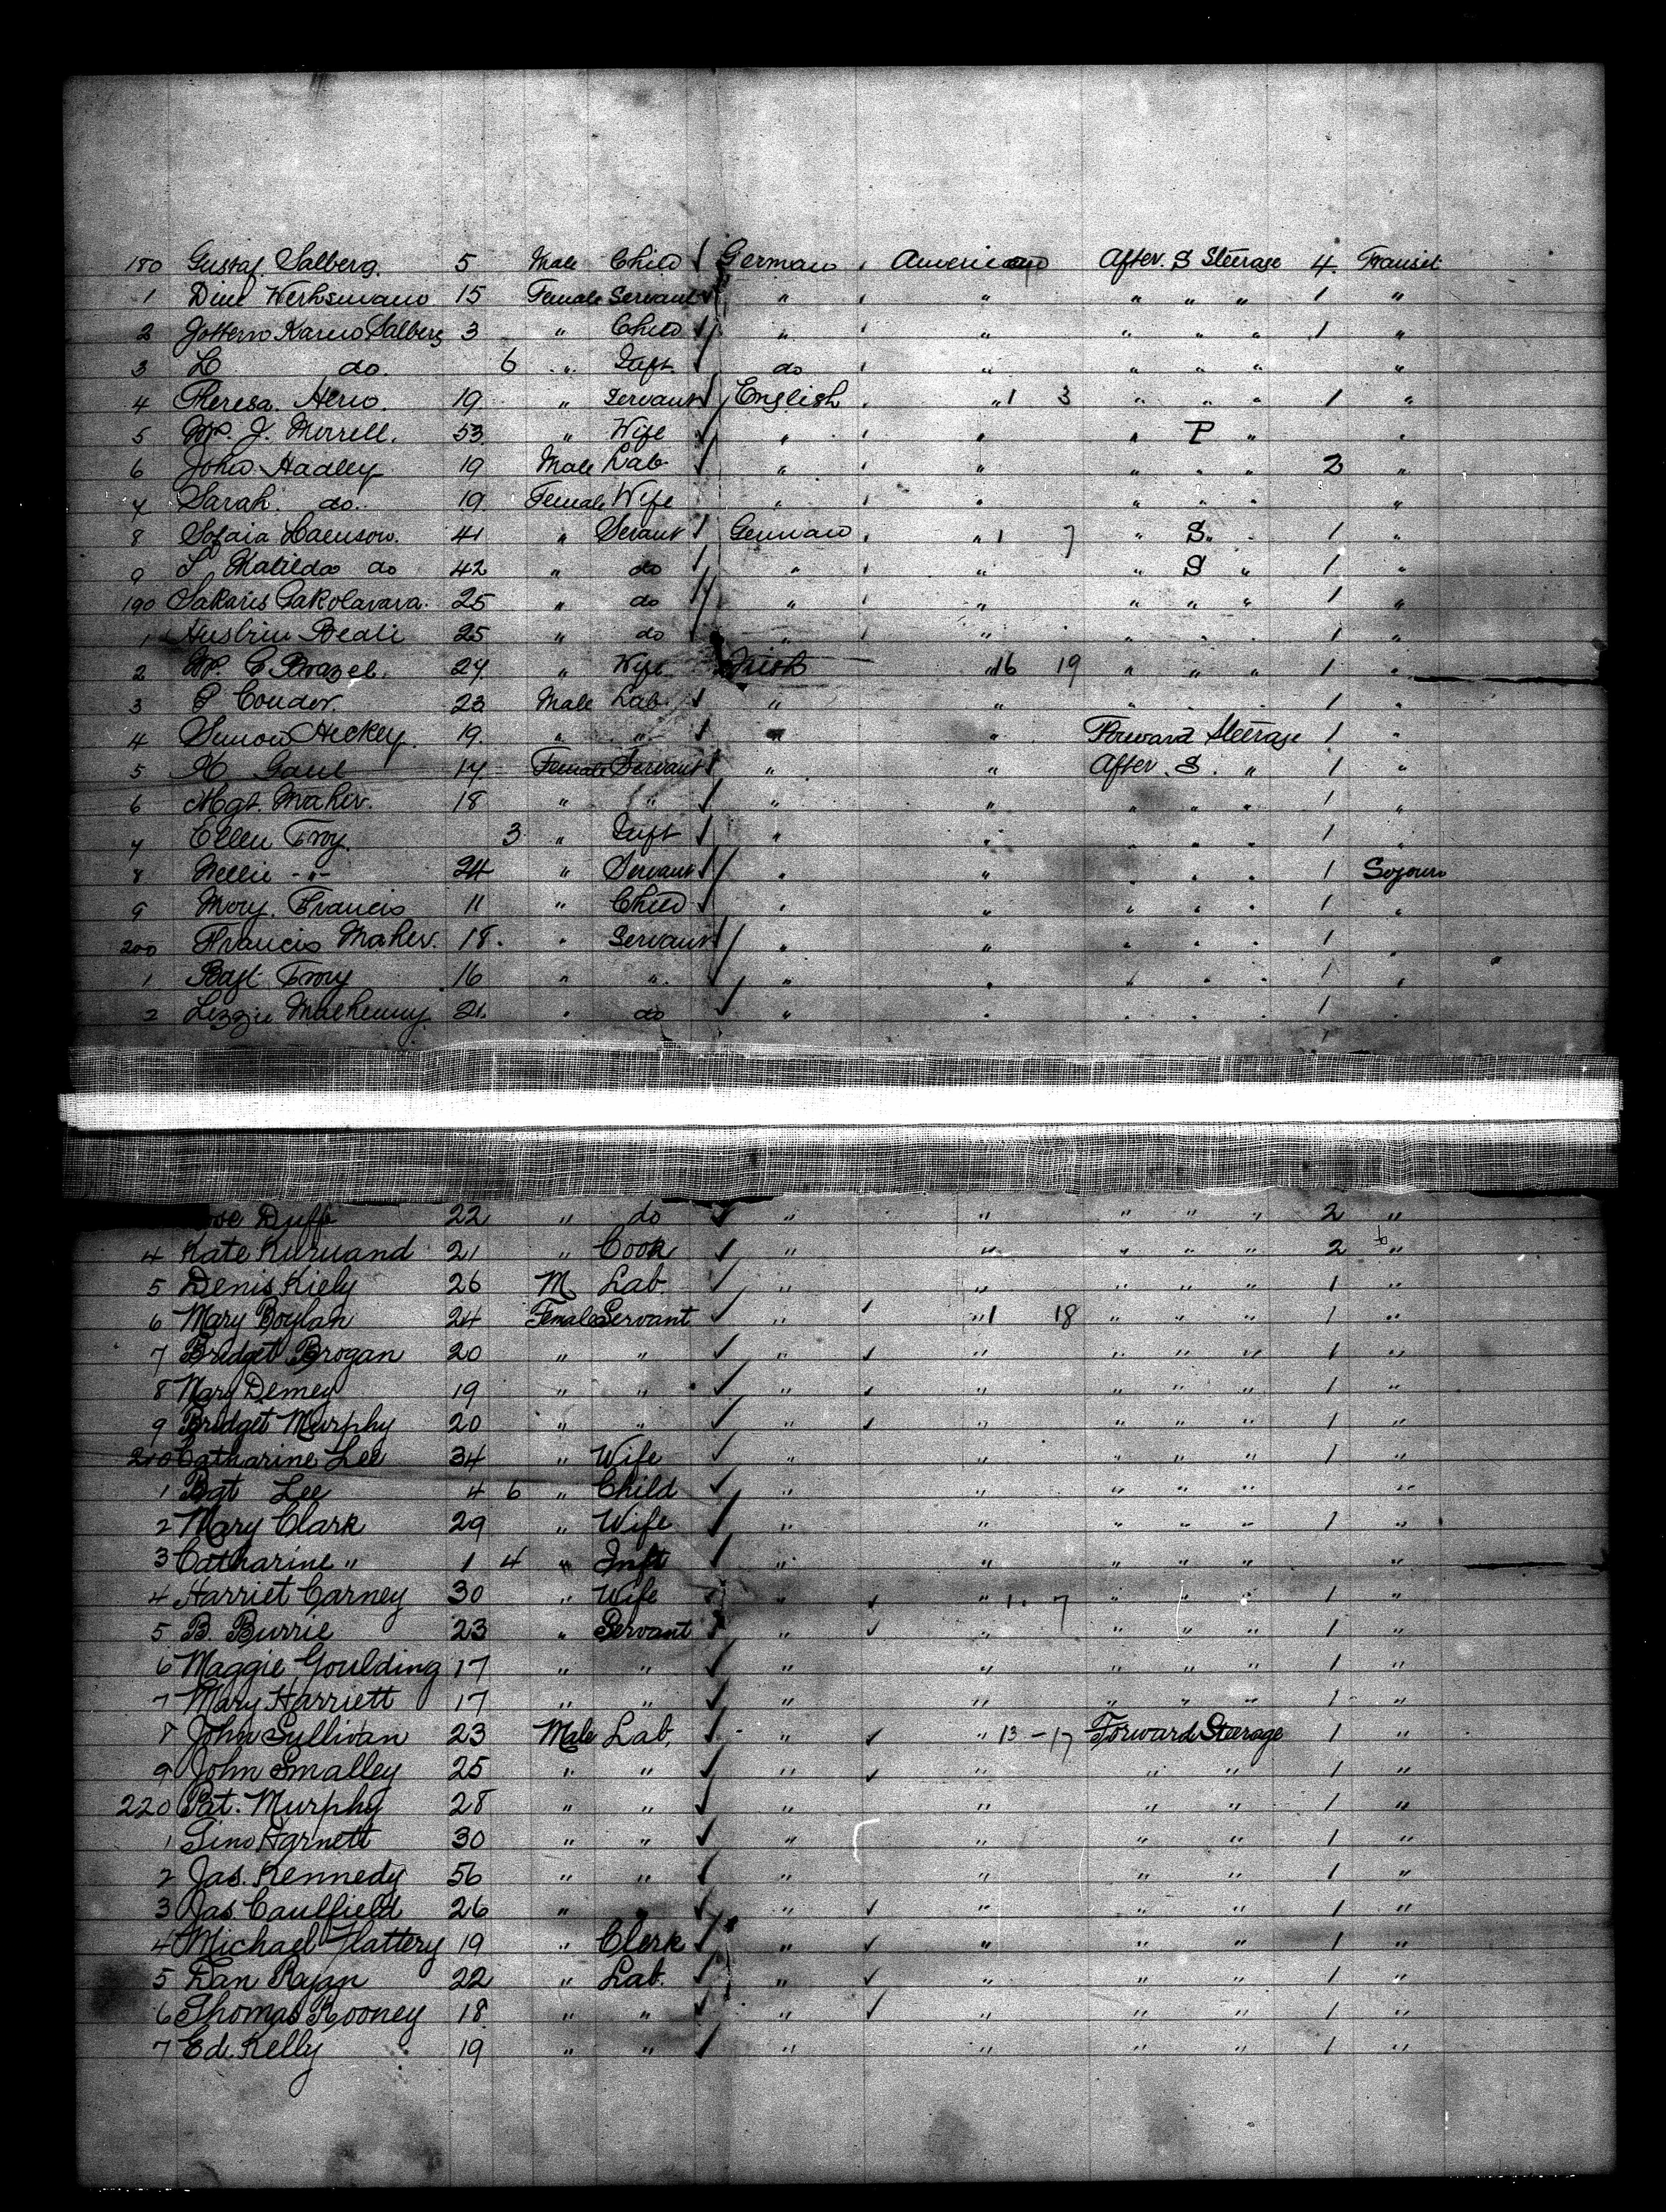 180 Gustaf. Salberg. 5 Male Child German American After. S Steerage 4. Transit
1 15 Female Servant " " " " " 1 "
2 Salberg 3 " Child " " " " " 1 "
3 L do. 6 " Inft. do " " " " "
4 Theresa. 19 " Servant English " 1 3 " " " 1 "
5 J. Morrell. 53. " Wife " " " P " "
6 John Hadley 19 Male Lab " " " " " 2 "
7 Sarah. do. 19 Female Wife " " " " " "
8 41 " Servant German " 1 7 " S " 1 "
9 Matilda do 42 " do " " " S " 1 "
190 Sakaris 25 " do " " " " " 1 "
1 25 " do " " " " " 1 "
2 27 " Wife Irish " 16 19 " " " 1 "
3 23 Male Lab. " " " " " 1 "
4 Simon Hickey. 19. " " " " Forward Steerage 1 "
5 Gaul 17 Female Servant " " After. S. " 1 "
6 Mgt. Maher. 18 " " " " " " " 1 "
7 Ellen Troy. 3 " Inft " " " " " 1 "
8 Nellie -"- 24 " Servant " " " " " 1 Sojourn
9 Mary. Francis 11 " Child " " " " " 1 "
200 Francis Maher. 18. " Servant " " " " " 1
1 Troy 16 " " " " " " " 1 "
2 Lizzie 21. " do " " " " " 1 "
Duff 22 " do " " " " " 2 "
4 Kate 21 " Cook " " " " " 2 "
5 Denis Kiely 26 M Lab. " " " " " 1 "
6 Mary Boylan 24 Female Servant " " 1 18 " " " 1 "
7 Bridget Brogan 20 " " " " " " " 1 "
8 Mary Demey 19 " " " " " " " 1 "
9 Bridget Murphy 20 " " " " " " " 1 "
210 Catharine Lee 34 " Wife " " " " " 1 "
1 Bgt Lee 4 6 " Child " " " " " "
2 Mary Clark 29 " Wife " " " " " 1 "
3 Catharine " 1 4 " Inft " " " " " "
4 Harriet Carney 30 " Wife " " 1. 7 " " " 1 "
5 B. Burrie 23 " Servant " " " " " 1 "
6 Maggie Goulding 17 " " " " " " " 1 "
7 Mary Harriett 17 " " " " " " " 1 "
8 John Sullivan 23 Male Lab, " " 13 - 17 Forward Steerage 1 "
9 John Smalley 25 " " " " " " 1 "
220 Pat. Murphy 28 " " " " " " 1 "
1 Harnett 30 " " " " " " 1 "
2 Jas. Kennedy 56 " " " " " " 1 "
3 Jas Caulfield 26 " " " " " " 1 "
4 Michael Flattery 19 " Clerk " " " " 1 "
5 Dan Ryan 22 " Lab. " " " " 1 "
6 Thomas Rooney 18 " " " " " " 1 "
7 Ed. Kelly 19 " " " " " " 1 "